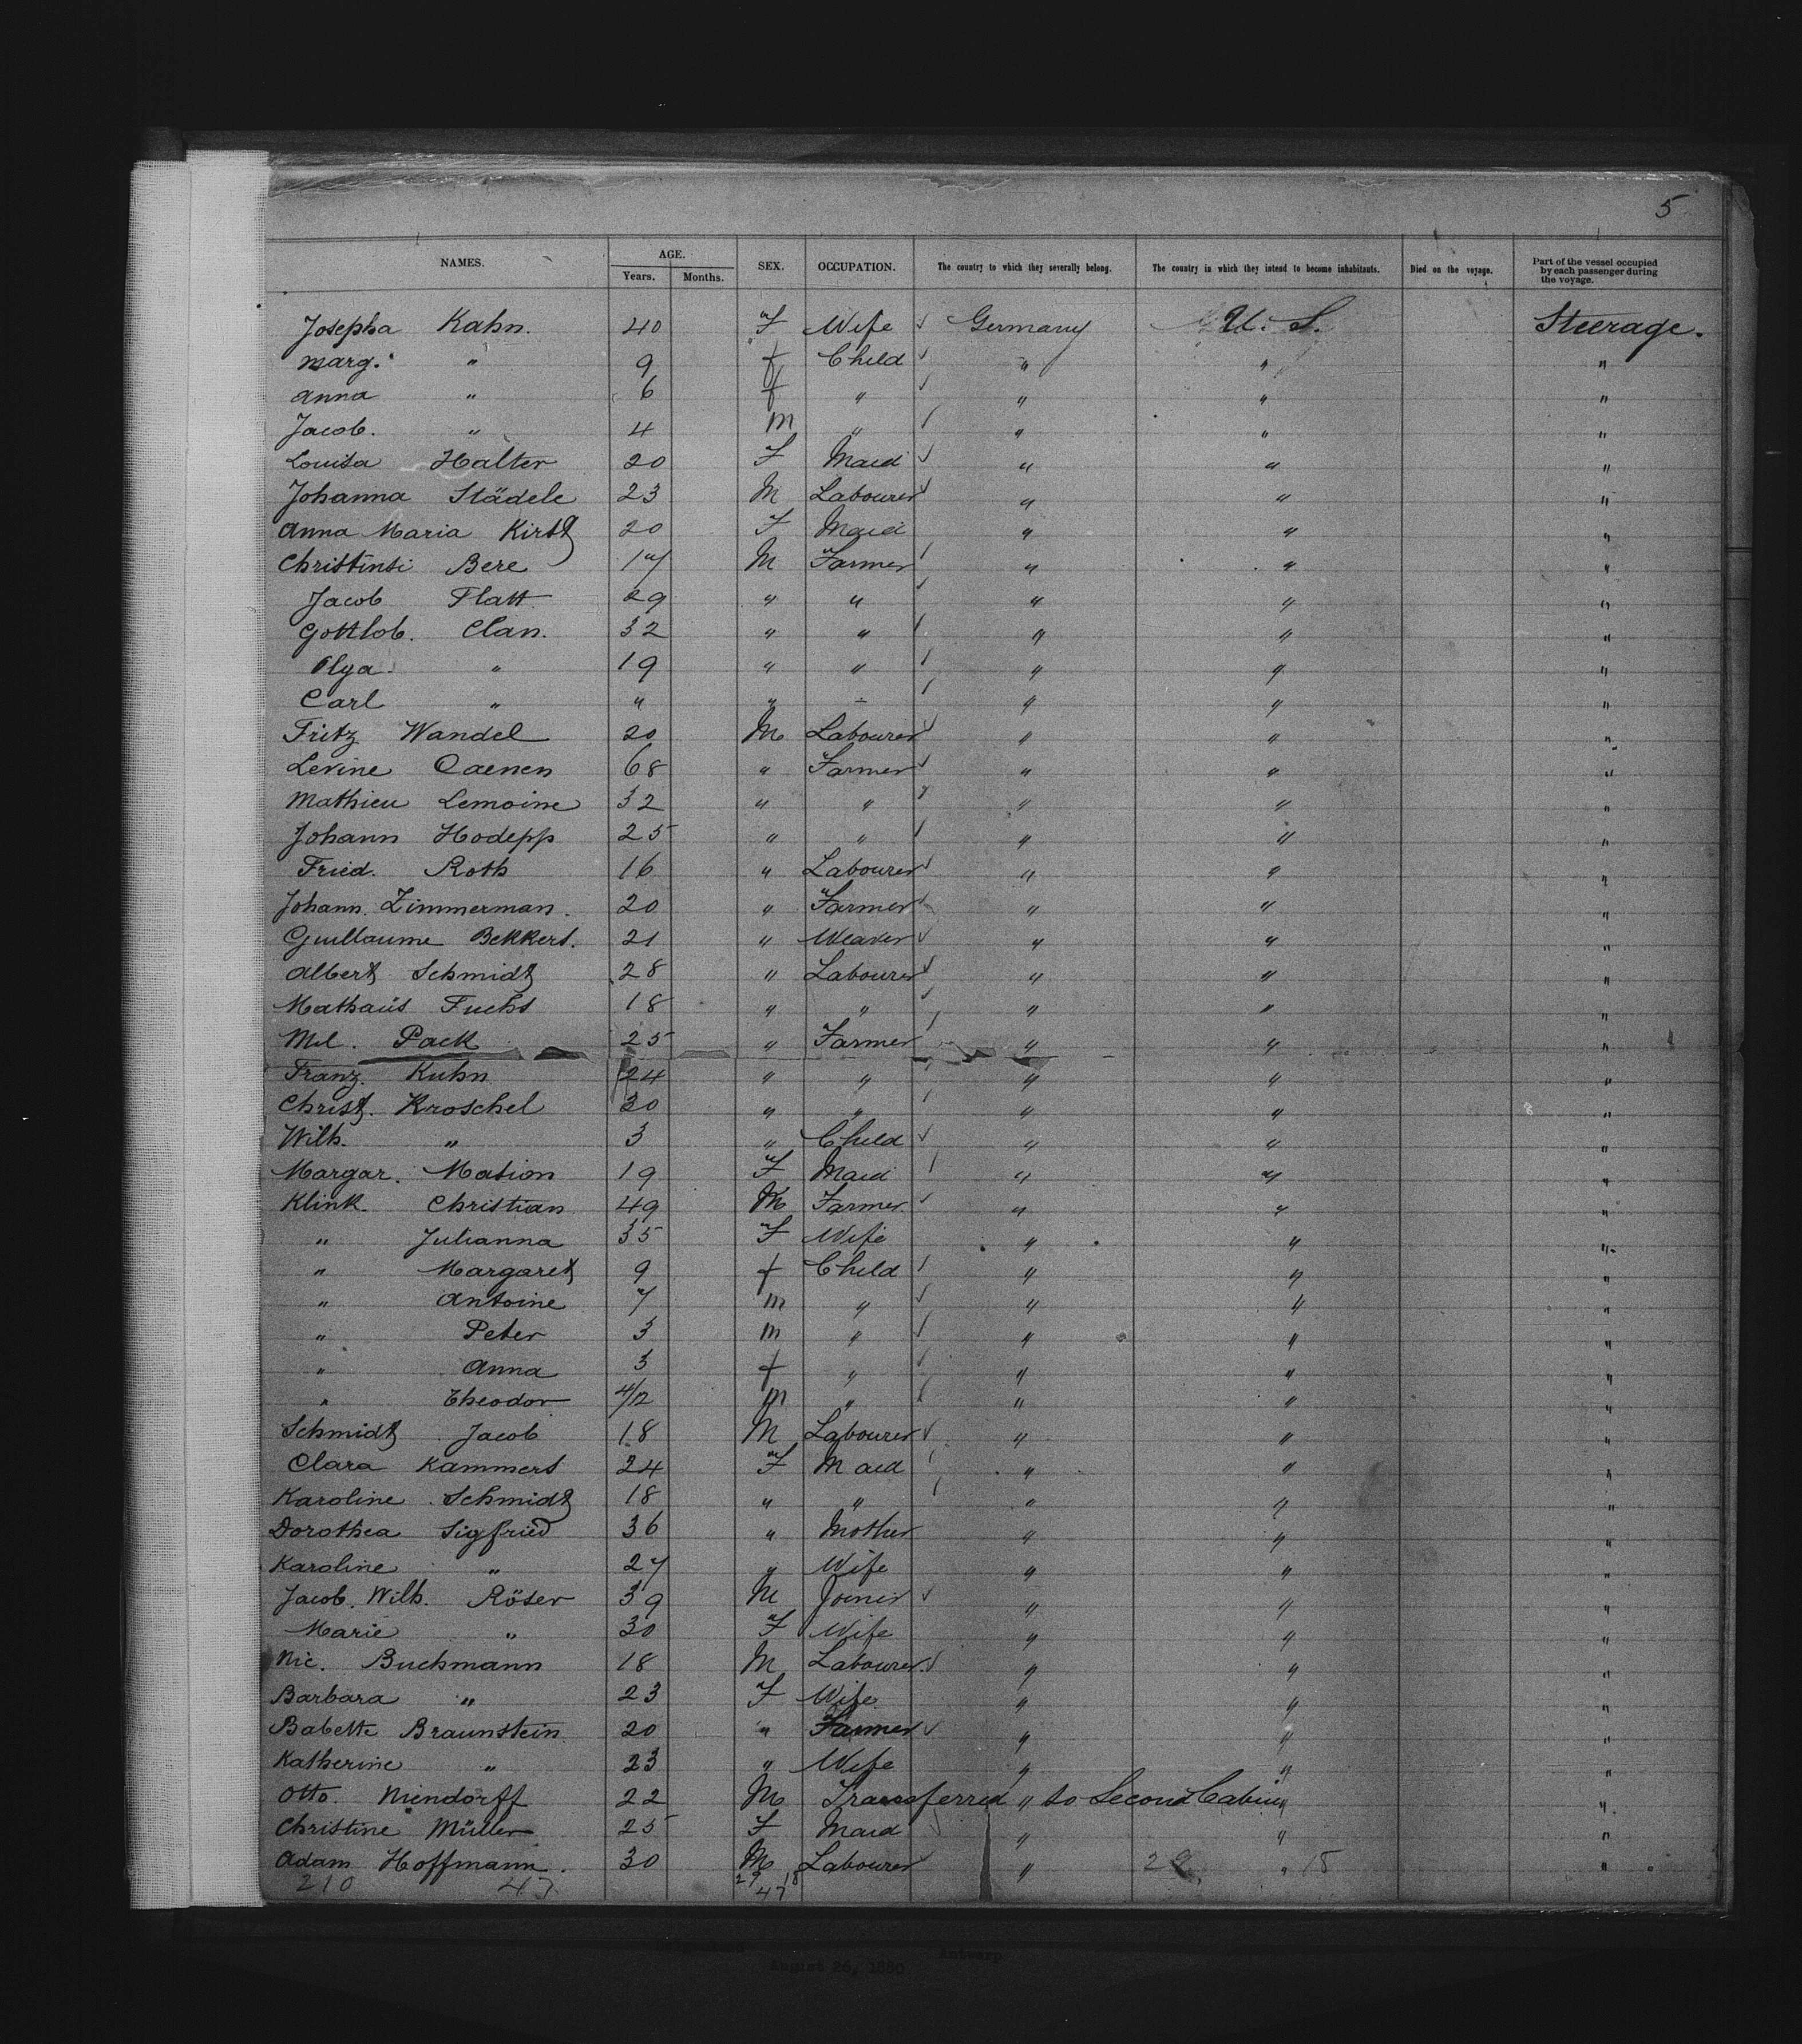 5
NAMES. AGE. SEX. OCCUPATION. The country to which they severally belong. The country in which they intend to become inhabitants. Died on the voyage. Part of the vessel occupied by each passenger during the voyage.
Years. Months.
Josepha Kahn. 40 F Wife ✓ Germany U. S. Steerage.
Marg. " 9 f Child ✓ " " "
Anna " 6 f " ✓ " " "
Jacob. " 4 m " ✓ " " "
Louisa Halter 20 F Maid ✓ " " "
Johanna Städele 23 M Labourer ✓ " " "
Anna Maria Kirst 20 F Maid " " "
Christinsi Bere 17 M Farmer ✓ " " "
Jacob Flatt 29 " " ✓ " " "
Gottlob. Clan. 32 " " ✓ " " "
Olga " 19 " " ✓ " " "
Carl " " " " ✓ " " "
Fritz Wandel 20 M Labourer ✓ " " "
Levine Caenen 68 " Farmer ✓ " " "
Mathieu Lemoine 32 " " ✓ " " "
Johann Hodepp 25 " " ✓ " " "
Fried. Roth 16 " Labourer ✓ " " "
Johann. Zimmerman. 20 " Farmer ✓ " " "
Guillaume Bekkers. 21 " Weaver ✓ " " "
Albert Schmidt 28 " Labourer ✓ " " "
Mathaüs Fuchs 18 " " ✓ " " "
Mel. Pack 25 " Farmer ✓ " " "
Franz. Kuhn 24 " " ✓ " " "
Christ. Kroschel 30 " " ✓ " " "
Wilh. " 3 " Child ✓ " " "
Margar. Mation 19 F Maid ✓ " " "
Klink Christian 49 M Farmer ✓ " " "
" Julianna 35 F Wife " " "
" Margaret 9 f Child ✓ " " "
" Antoine 7 m " ✓ " " "
" Peter 3 m " ✓ " " "
" Anna 3 f " ✓ " " "
" Theodor 4/12 m " ✓ " " "
Schmidt Jacob 18 M Labourer ✓ " " "
Clara Kammers 24 F Maid ✓ " " "
Karoline Schmidt 18 " " ✓ " " "
Dorothea Sigfried 36 " Mother " " "
Karoline " 27 " Wife " " "
Jacob. Wilh. Röser 39 M Joiner ✓ " " "
Marie " 30 F Wife " " "
Nic. Buchmann 18 M Labourer ✓ " " "
Barbara " 23 F Wife " " "
Babette Braunstein 20 " Farmer ✓ " " "
Katherine " 23 " Wife " " "
Otto. Niendorff 22 M Transferred " to Second Cabin " "
Christine Müller 25 F Maid ✓ " " "
Adam Hoffmann. 30 M Labourer ✓ " 29 " 18 "
210 47 29 18
47
Antwerp
August 26, 1880